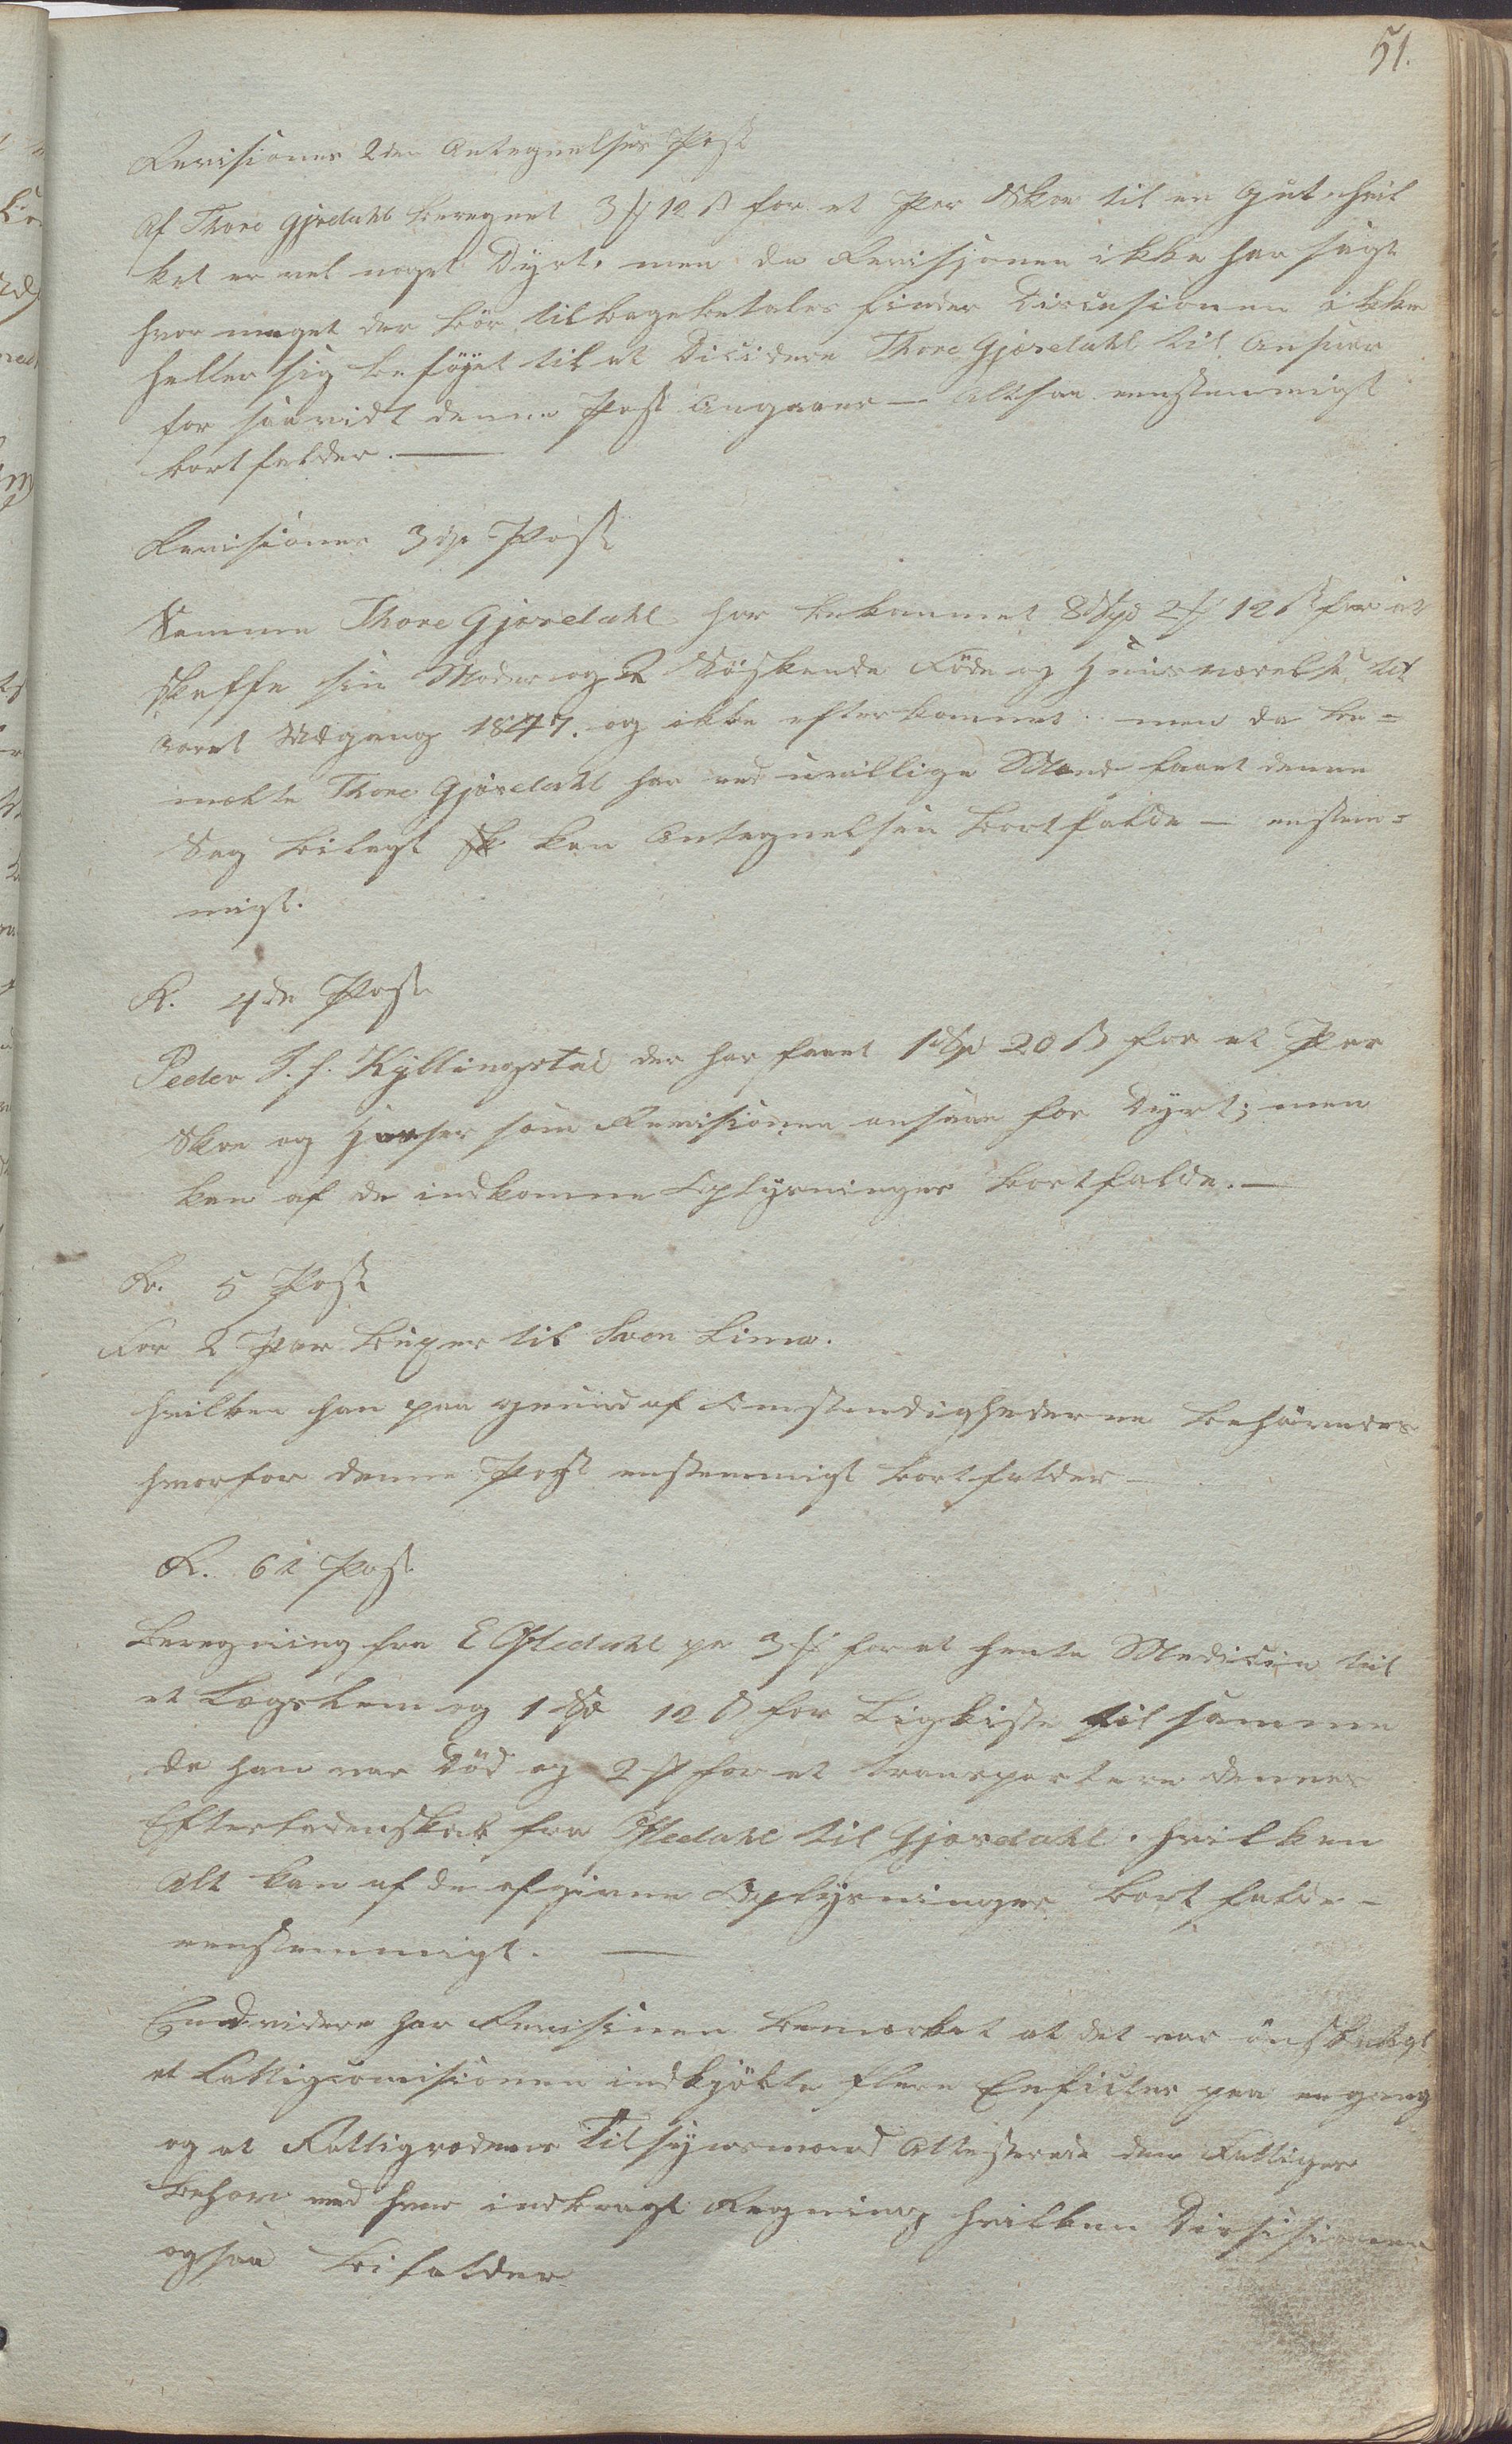 51.
Revisiones 2den Antegnelses Post
Af Thore Gjøredahl beregnet 3 # 12 ß for et Par Skoe til en Gut, hvil
ket er vel noget Dyrt, men da Revisjonen ikke har sagt
hvor meget der bør tilbagebetales finder Discusionen ikke
heller sig beføyet til at Dicidere Thore Gjøredahl til Ansvar
for saavidt denne Post angaaer — Altsaa eenstemmigt
bortfalder. —
Revisiones 3die Post
Samme Thore Gjøredahl har bekommet 8 Spd 2 # 12 ß for at
skaffe sin Moder og 2 Søskende Føde og Huusværelse til
Aaret Udgang 1847. og ikke efterkommet. men da be=
mælte Thore Gjøredahl har ved uvillige Mænd faaet denne
Sag bilagt kan Antegnelsen bortfalde — enstem=
migt.
R. 4de Post
Peder T. s. Kyllingstad der har faaet 1 Spd 20 ß for et Par
Skoe og Hoser som Revisionen ansaae for Dyrt; men
kan af de indkomne Oplysninger bortfalde. —
R. 5 Post
For 2 Par Buxer til Sven Lima.
hvilken han paa grund af Omstændighederne behøvedes
hvorfor denne Post enstemmigt bortfalder —
R. 6te Post
Beregning fra E Østedahl pr 3 # for at hente Medicin til
et Lægslem og 1 Spd 12 ß for Ligkiste til samme
da han var Død og 2 # for at transportere dennes
Efterladenskab fra Østedahl til Gjøredahl. hvilken
Alt kan af de afgivne Oplysninger bortfalde —
eenstemmigt. —
Endvidere har Revisionen bemærket at det var ønskeligt
at Fattigcomisionen indkjøbte flere Enficter paa en gang
og at Fattigrodens Tilsynsmænd Attesterede den Fattiges
behov med hver indbragt Regning, hvilken Diskusionen
ogsaa bifalder